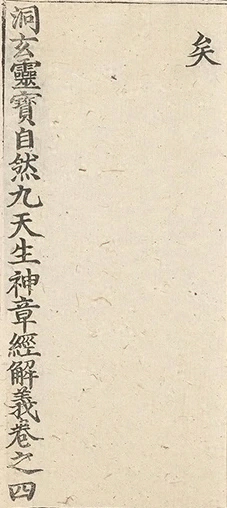 矣
洞玄靈寶自然九天生神章經解義卷之四